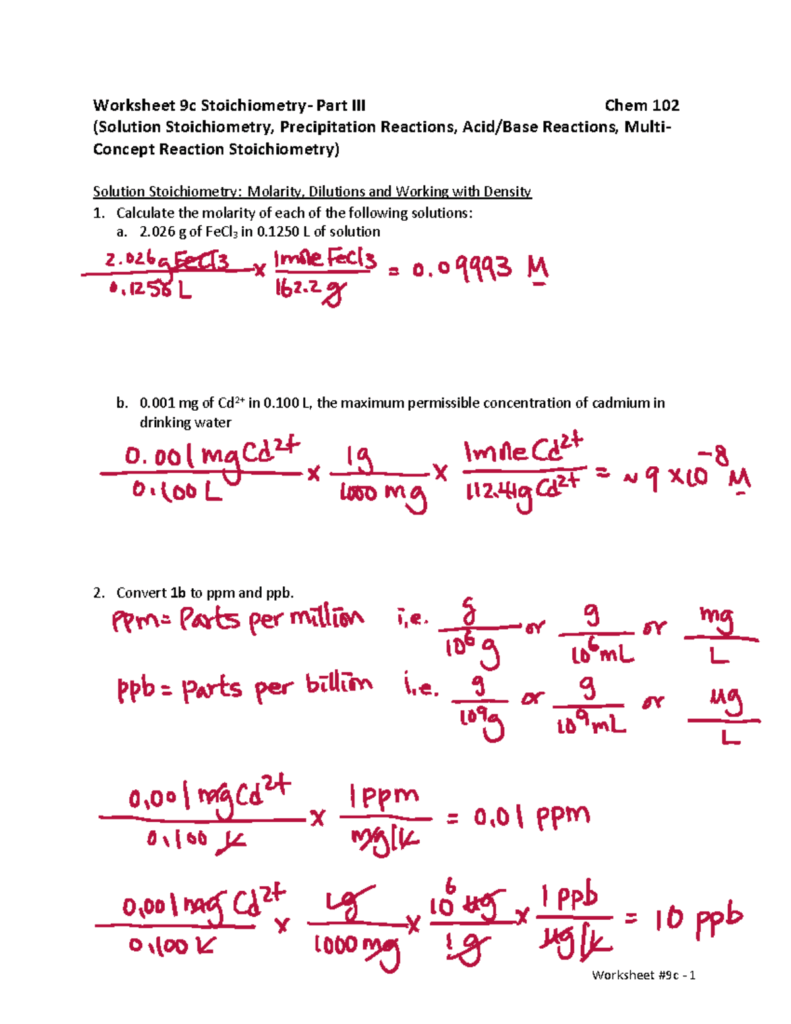 Worksheet 9c Stoichiometry- Part III Chem 102
(Solution Stoichiometry, Precipitation Reactions, Acid/Base Reactions, Multi-
Concept Reaction Stoichiometry)
Solution Stoichiometry: Molarity, Dilutions and Working with Density
1. Calculate the molarity of each of the following solutions:
a. 2.026 g of FeCl₃ in 0.1250 L of solution
2.026g FeCl3 / 0.1250 L x 1 mole FeCl3 / 162.2 g = 0.09993 M
b. 0.001 mg of Cd²⁺ in 0.100 L, the maximum permissible concentration of cadmium in
drinking water
0.001 mg Cd²⁺ / 0.100 L x 1g / 1000 mg x 1 mole Cd²⁺ / 112.41g Cd²⁺ = ~ 9 x10⁻⁸ M
2. Convert 1b to ppm and ppb.
ppm = Parts per million i.e. g / 10⁶ g or g / 10⁶ mL or mg / L
ppb = Parts per billion i.e. g / 10⁹ g or g / 10⁹ mL or µg / L
0.001 mg Cd²⁺ / 0.100 L x 1 ppm / mg/L = 0.01 ppm
0.001 mg Cd²⁺ / 0.100 L x 1g / 1000 mg x 10⁶ µg / 1g x 1 ppb / µg/L = 10 ppb
Worksheet #9c - 1